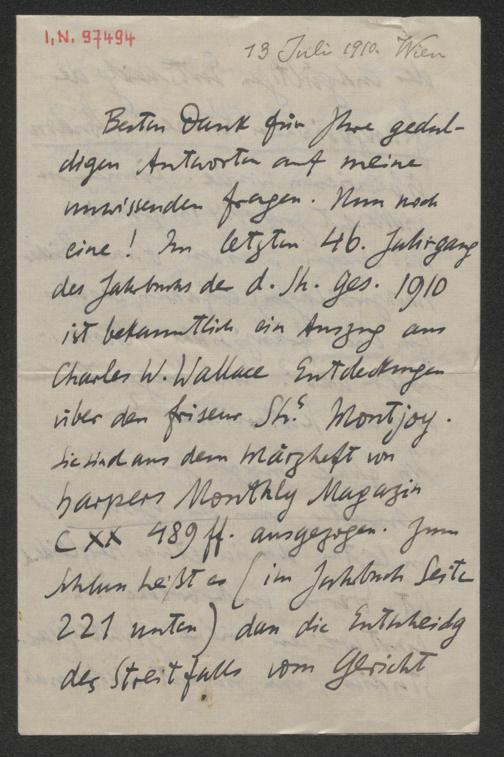 I.N. 97494
13 Juli 1910. Wien
Besten Dank für Ihre gedul-
digen Antworten auf meine
unwissenden Fragen. Nun noch
eine! Im letzten 46. Jahrgang
des Jahrbuchs der d. Sh. Ges. 1910
ist bekanntlich ein Auszug aus
Charles W. Wallace Entdeckungen
über den Friseur Sh.s Montjoy.
Sie sind aus dem Märzheft von
harpers Monthly Magazin
CXX 489 ff. ausgezogen. Zum
Schluss heißt es (im Jahrbuch Seite
221 unten) dass die Entscheidg
des Streitfalls vom Gericht